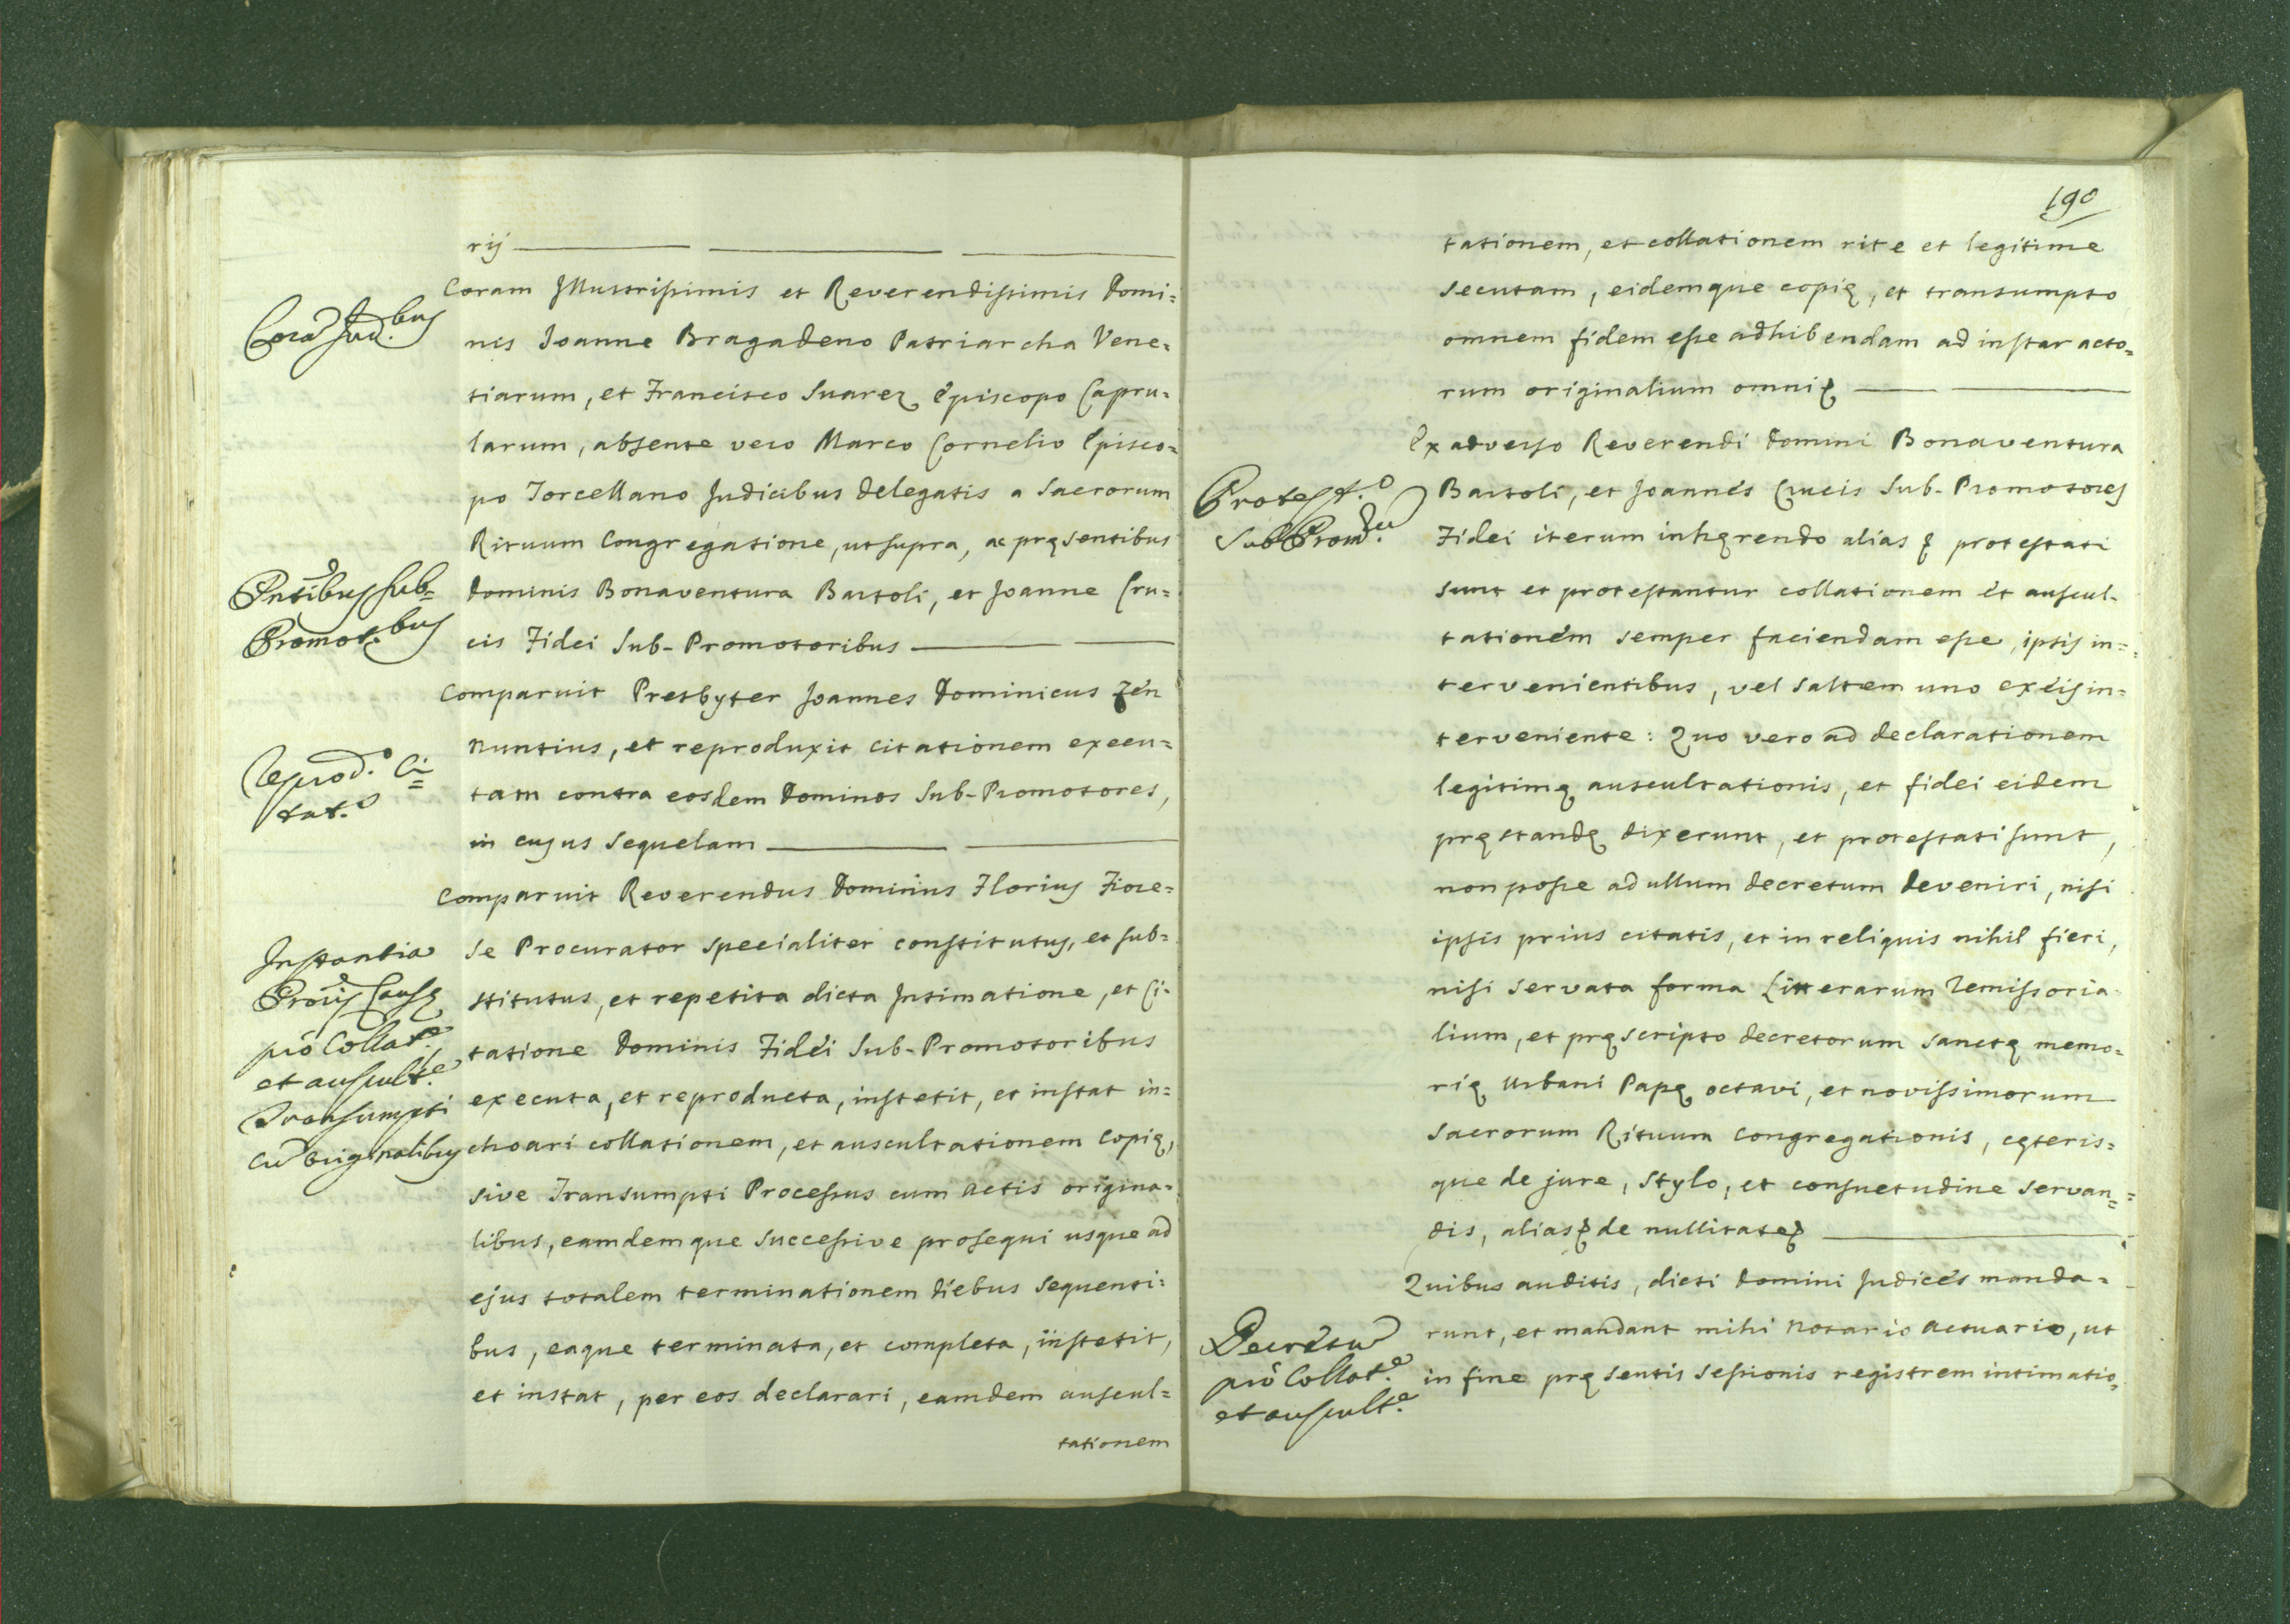 rij
Coram Illustrissimis et Reverendissimis Domi=
Corā Jud.bus
nis Joanne Bragadeno Patriarcha Vene=
tiarum, et Francisco Suarez Episcopo Capru=
larum, absente vero Marco Cornelio Episco=
po Torcellano Judicibus delegatis a Sacrorum
Rituum Congregatione, ut supra, ac pręsentibus
Pntibus sub=
Promot.bus
Dominis Bonaventura Bartoli, et Joanne Cru=
cis Fidei Sub-Promotoribus
Comparuit Presbyter Joannes Dominicus Zen
Nuntius, et reproduxit citationem execu=
Reprod.o Ci=
tat.o
tam contra eosdem Dominos Sub-Promotores,
in cujus sequelam
Comparuit Reverendus Dominus Florius Fiore=
se Procurator specialiter constitutus, et sub=
Instantia
Proris Causę
pro Collat.e
et auscult.e
Transumpti
cū originalibus
stitutus, et repetita dicta Intimatione, et Ci-
tatione Dominis Fidei Sub-Promotoribus
executa, et reproducta, institit, et instat in=
choari collationem, et auscultationem copię,
sive Transumpti Processus cum actis origina=
libus, eamdemque successive prosequi usque ad
ejus totalem terminationem diebus sequenti=
bus, eaque terminata, et completa, institit,
et instat, per eos declarari, eamdem auscul=
tationem
190
tationem, et collationem rite et legitime
secutam, eidemque copię, et transumpto
omnem fidem esse adhibendam ad instar acto=
rum originalium omni
Ex adverso Reverendi Domini Bonaventura
Protest.o
Sub Prom.
Bartoli, et Joannes Crucis Sub-Promotores
Fidei iterum inhęrendo alias protestati
sunt et protestantur collationem et auscul-
tationem semper faciendam esse, ipsis in=
tervenientibus, vel saltem uno ex eis in=
terveniente: Quo vero ad declarationem
legitimę auscultationis, et fidei eidem
pręstandę dixerunt, et protestati sunt,
non posse ad ullum decretum deveniri, nisi
ipsis prius citatis, et in reliquis nihil fieri,
nisi servata forma Litterarum remissoria-
lium, et pręscripto decretorum sanctę memo=
rię Urbani Papę octavi, et novissimorum
Sacrorum Rituum Congregationis, cęteris=
que de jure, stylo, et consuetudine servan=
dis, alias de nullitate
Quibus auditis, dicti Domini Judices manda=
Decretū
pro Collat.e
et auscult.e
runt, et mandant mihi Notario Actuario, ut
in fine pręsentis sessionis registrem intimatio=